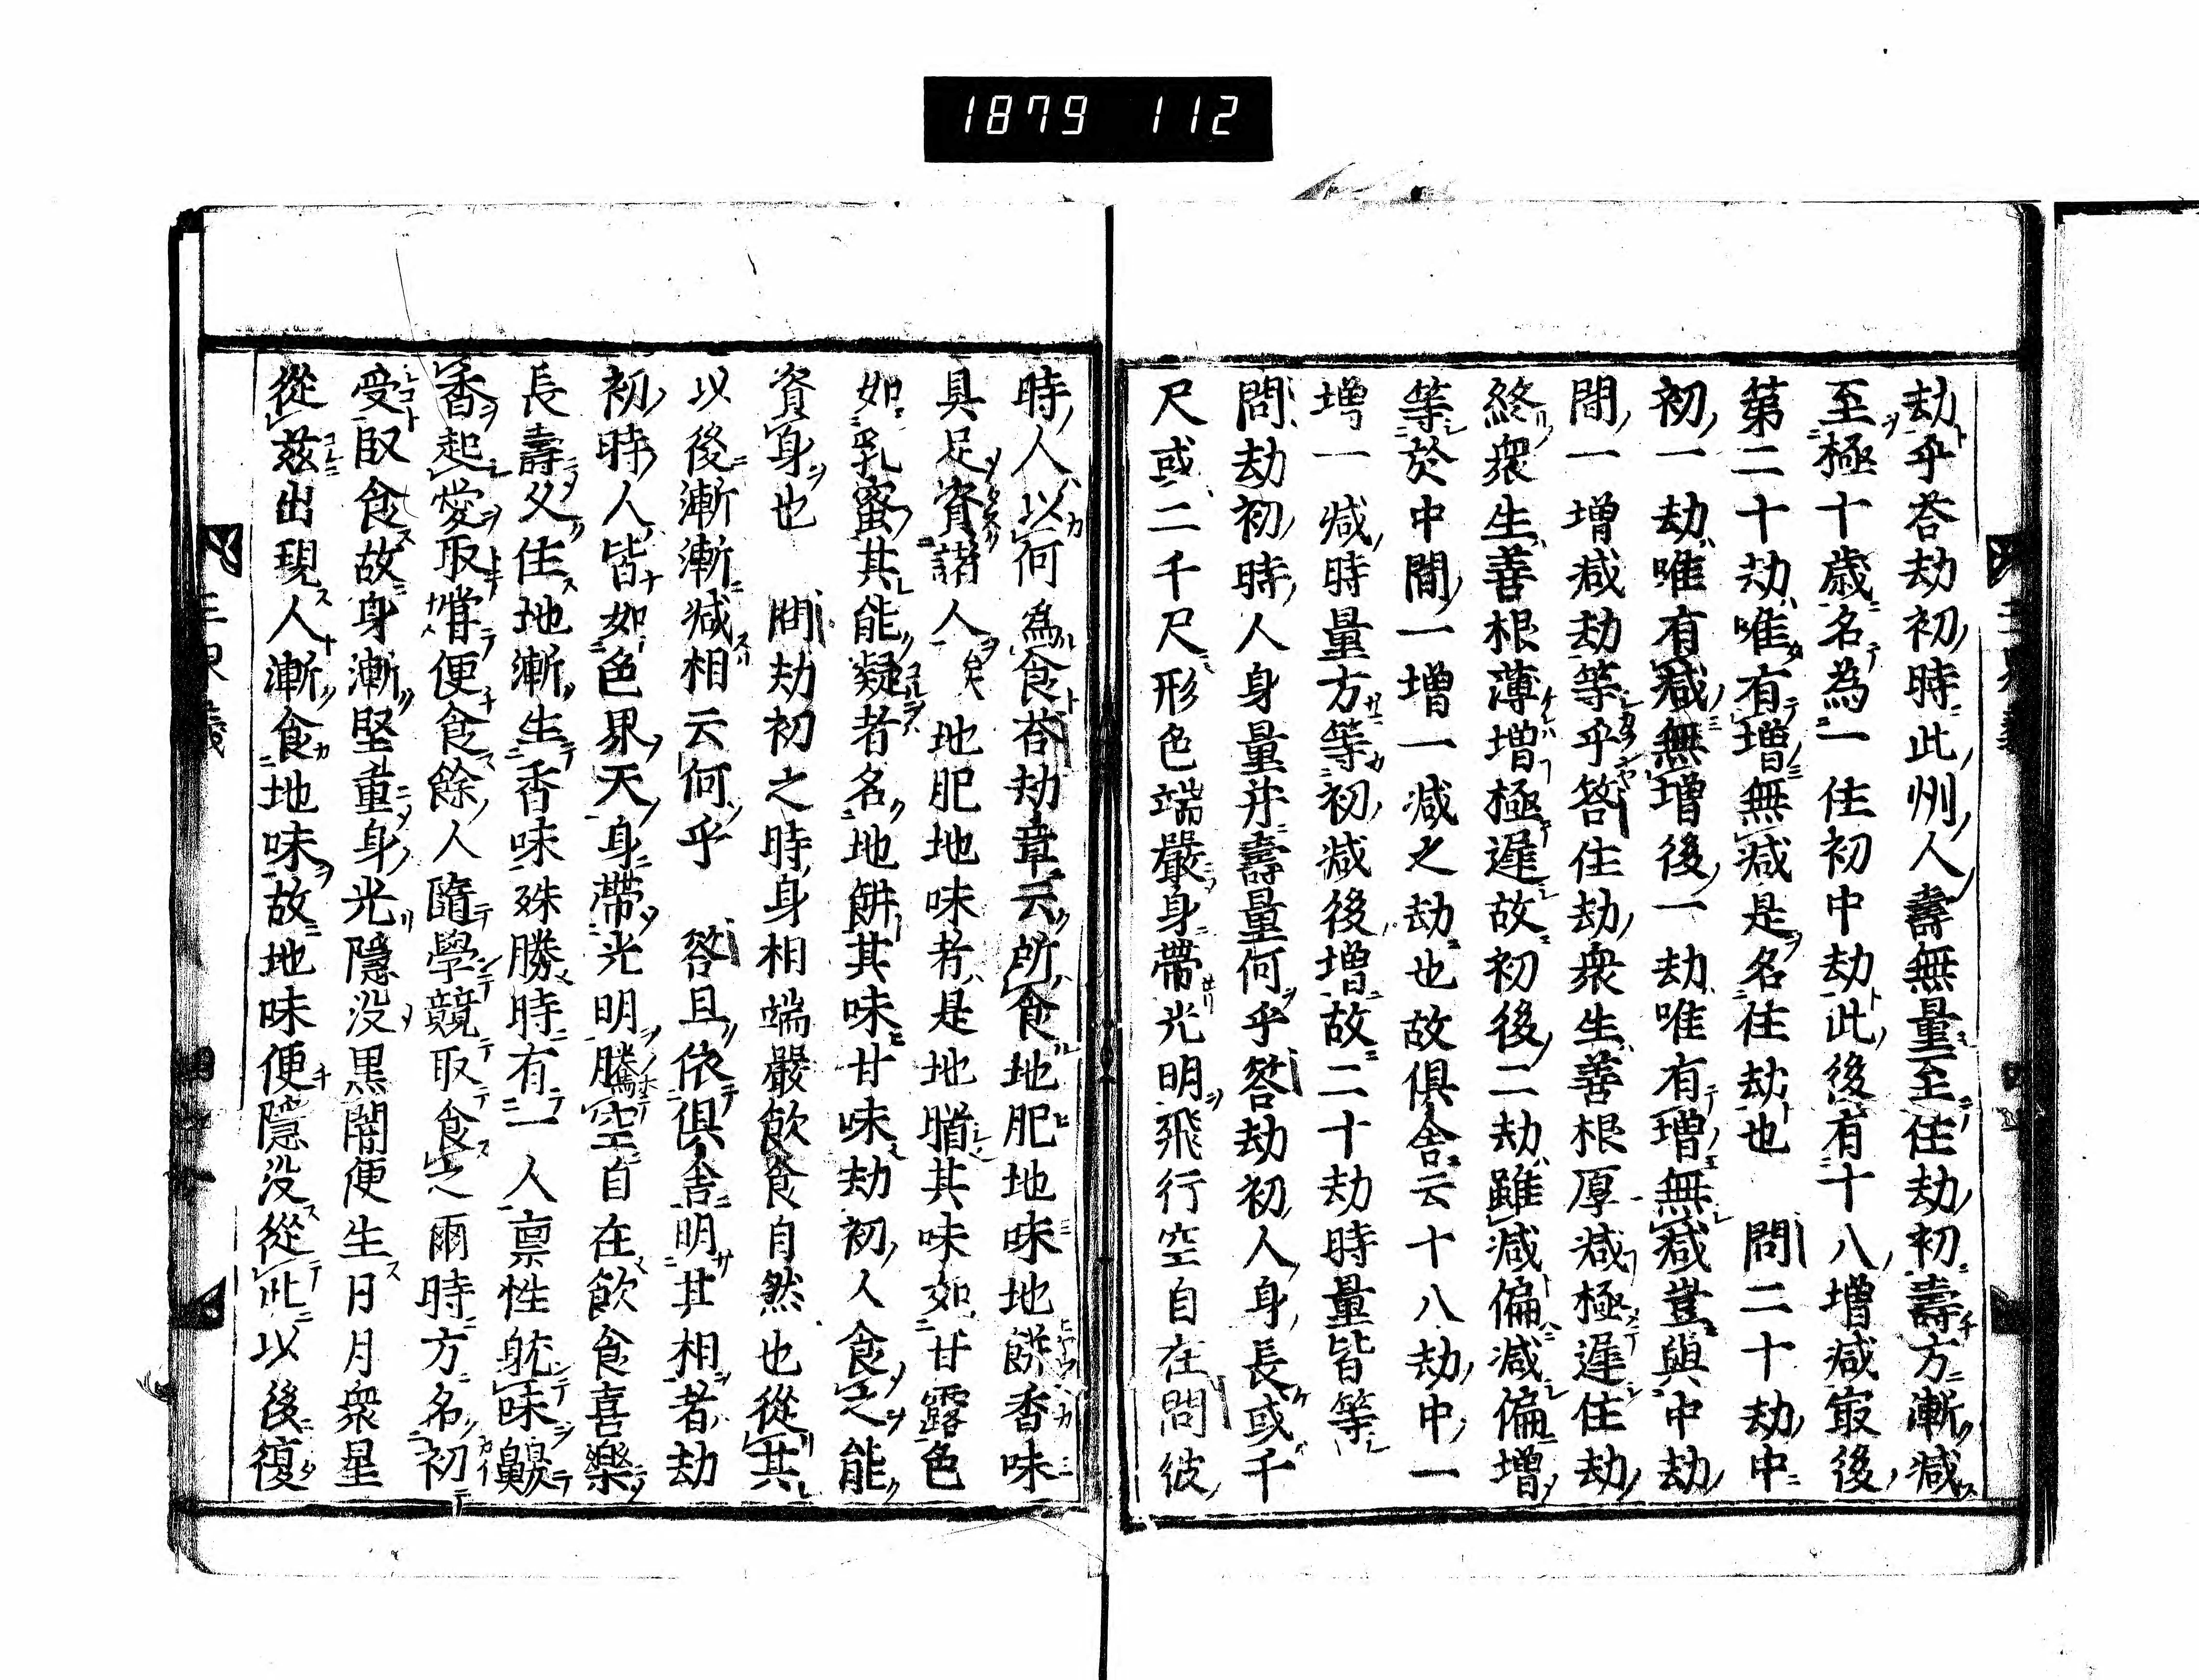 1879 112
劫乎荅劫初時此州人壽無量至住劫初壽方漸减
至極十歳名為一住初中劫此後有十八增减㝡後
第二十劫唯有增無减是名住劫也　問二十劫中
初一劫唯有减無增後一劫唯有增無减豈與中劫
間一增减劫等乎答住劫衆生善根厚减極遲住劫
終衆生善根薄增極遲故初後二劫雖减偏减偏增
等於中間一增一减之劫也故俱舎云十八劫中一
增一减時量方等初减後增故二十劫時量皆等
問劫初時人身量并壽量何乎答劫初人身長或千
尺或二千尺形色端嚴身帶光明飛行空自在問彼
時人以何為食荅劫章云所食地肥地味地餅香味
具足資諸人矣　地肥地味者是地䐉其味如甘露色
如乳蜜其能凝者名地餅其味甘味劫初人食之能
資身也　問劫初之時身相端嚴飲食自然也從其
以後漸漸减相云何乎　答且依俱舎明其相者劫
初時人皆如色界天身帶光明騰空自在飲食喜樂
長壽久住地漸生香味殊勝時有一人禀性躭味齅
香起愛取嘗便食餘人隨學競取食之爾時方名初
受段食故身漸堅重身光隱没黒闇便生日月衆星
從兹出現人漸食地味故地味便隱没從此以後復